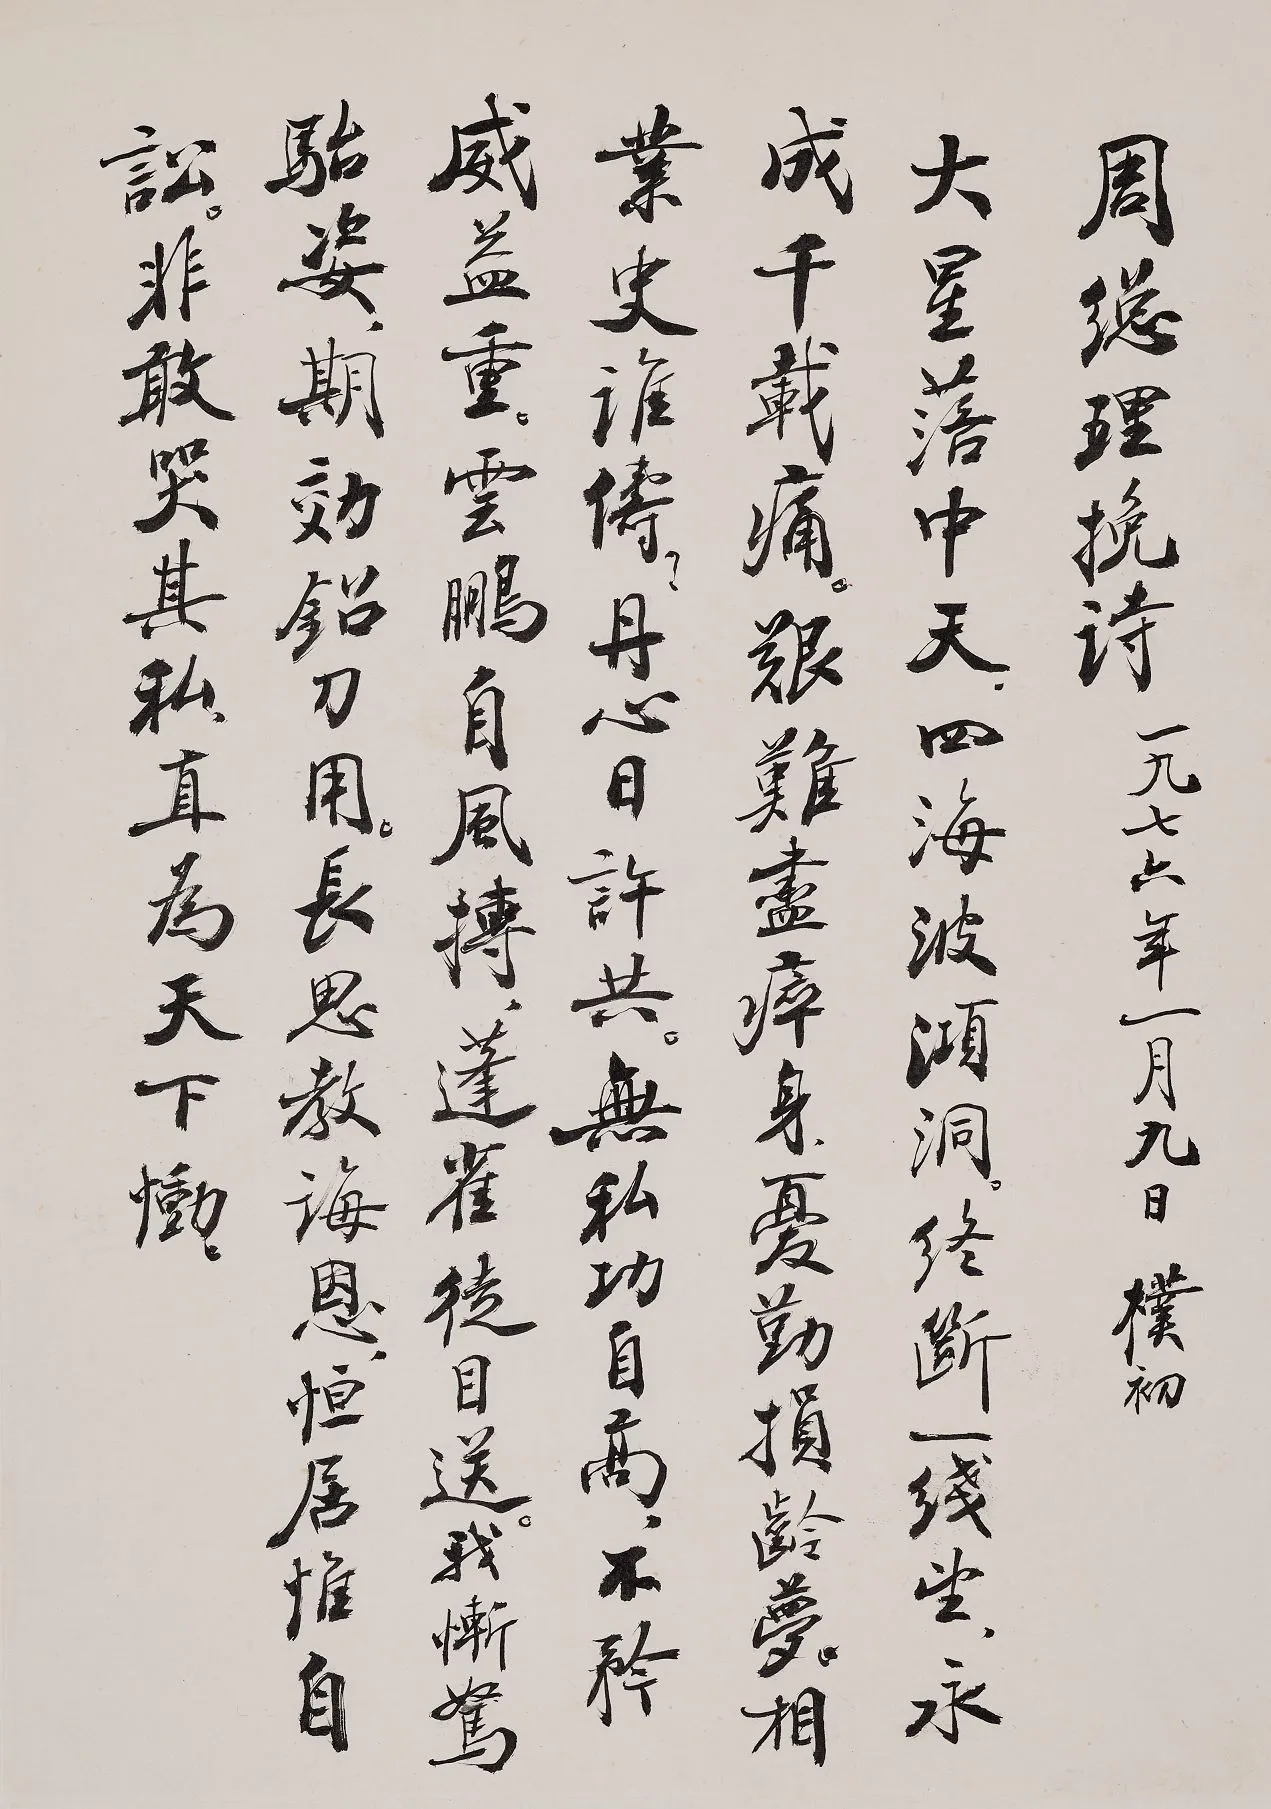 周總理挽诗 一九七六年一月九日 樸初
大星落中天、四海波澒洞。终斷一线望、永
成千載痛。艱難盡瘁身、憂勤損齡夢。相
業史谁儔？丹心日許共。無私功自高、不矜
威益重。雲鵬自風摶、蓬雀徒目送。我慚駑
駘姿、期効鉛刀用。長思教诲恩、恒居惟自
訟。非敢哭其私、直為天下慟。